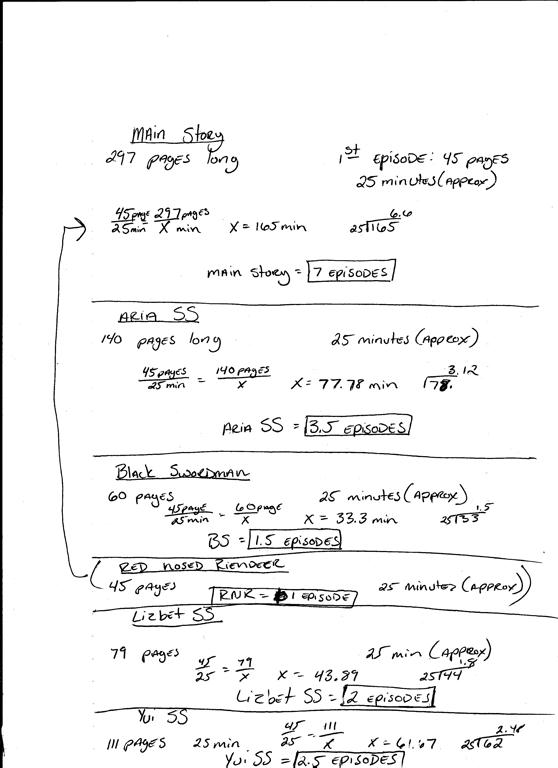 Main Story
297 pages long
1st Episode: 45 pages
25 minutes (Approx)
45 page / 25 min = 297 pages / X min    X = 165 min    25)165 6.6
Main Story = 7 Episodes
Aria SS
140 pages long    25 minutes (Approx)
45 pages / 25 min = 140 pages / X    X = 77.78 min    )78. 3.12
Aria SS = 3.5 Episodes
Black Swordman
60 pages    25 minutes (Approx)
45 page / 25 min = 60 page / X    X = 33.3 min    25)33 1.5
BS = 1.5 Episodes
(Red Nosed Riendeer
45 pages    RNR = 1 Episode    25 minutes (Approx))
Lizbet SS
79 pages    25 min (Approx)
45 / 25 = 79 / X    X = 43.89    25)44 1.8
Lizbet SS = 2 Episodes
Yui SS
111 pages    25 min    45 / 25 = 111 / X    X = 61.67    25)62 2.48
Yui SS = 2.5 Episodes